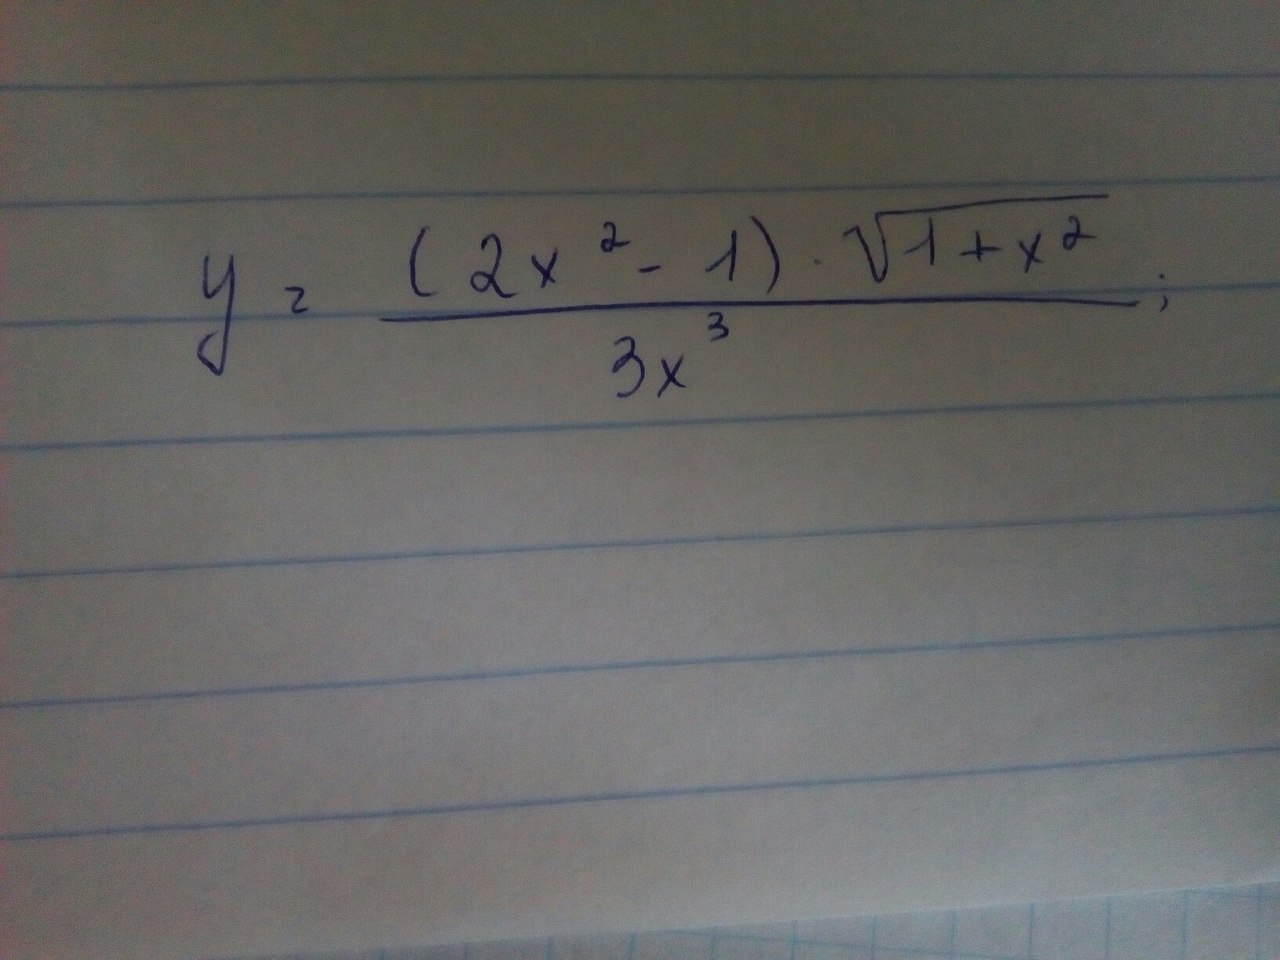 y = \frac{(2x^2 - 1) \cdot \sqrt{1 + x^2}}{3x^3};